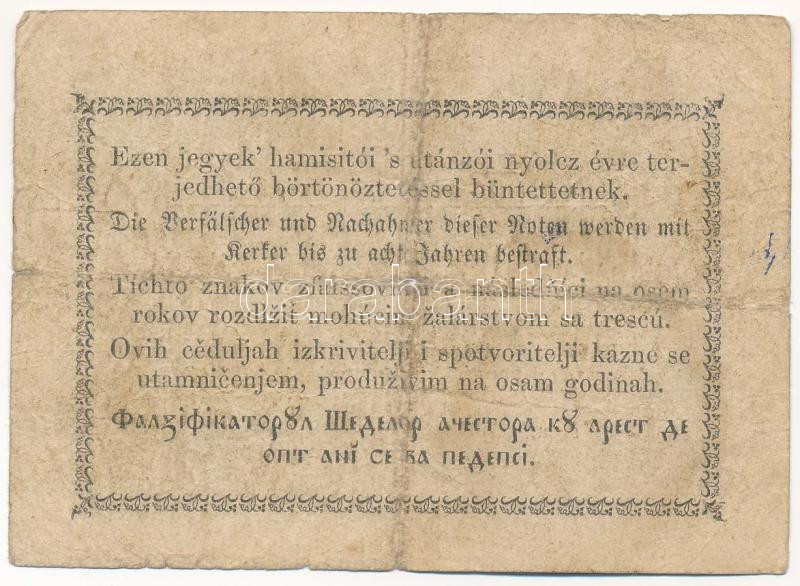 Ezen jegyek' hamisitói 's utánzói nyolcz évre ter-
jedhető börtönöztetéssel büntettetnek.
Die Verfälscher und Nachahmer dieser Noten werden mit
Kerker bis zu acht Jahren bestraft.
Tíchto znakov na osem
rokov rozdlžit mohúcim žalárstvom sa trescú.
Ovih cěduljah izkrivitelji i spotvoritelji kazne se
utamničenjem, produživim na osam godinah.
Фалзіфікаторꙋл Шеделор ачестора кꙋ арест де
опт анї се ва педепсі.
darabanth